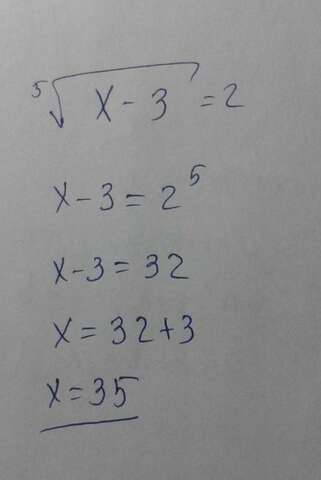 ⁵√x-3 = 2
x-3 = 2⁵
x-3 = 32
x = 32+3
x = 35